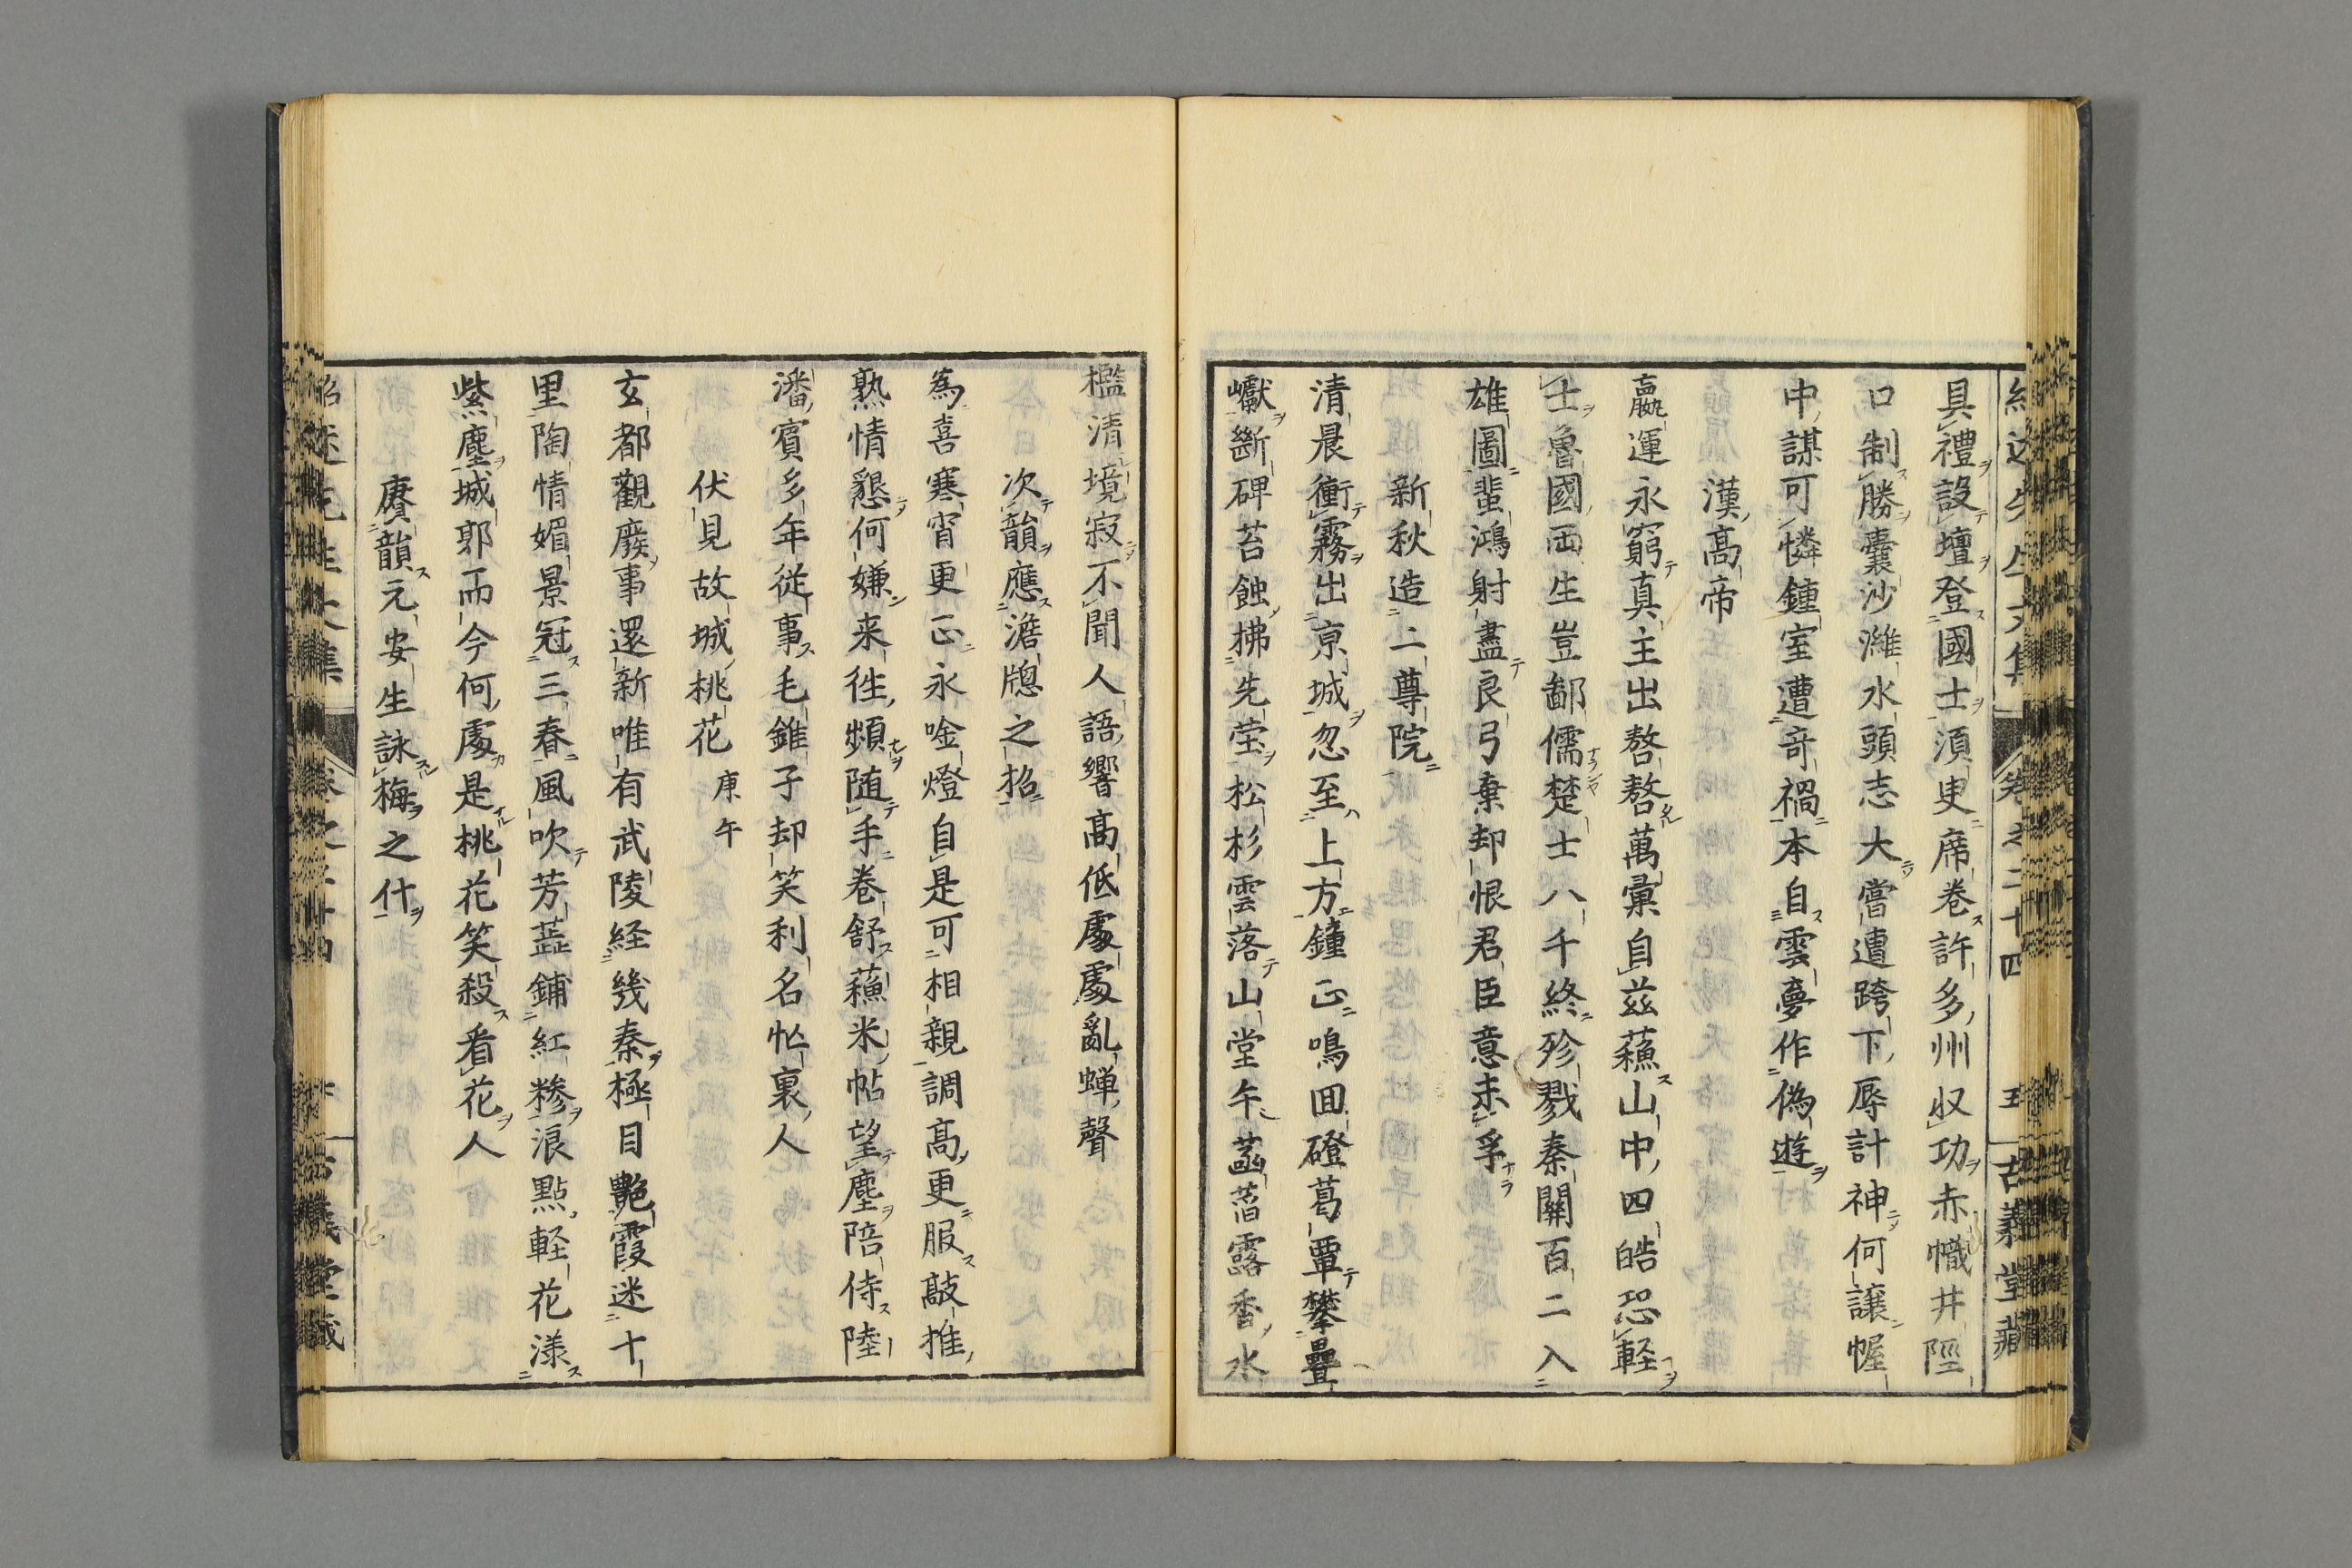 紹述先生文集 卷之二十四 五 古義堂藏
具禮設壇登國士須臾席卷許多州収功赤幟井陘
口制勝囊沙濰水頭志大嘗遭跨下辱計神何讓幄
中謀可憐鍾室遭奇禍本自雲夢作偽遊
漢高帝
嬴運永窮真主出嗸嗸萬彙自茲蘓山中四皓恐輕
士魯國両生豈鄙儒楚士八千終殄戮秦關百二入
雄圖蜚鴻射盡良弓棄却恨君臣意未孚
新秋造二尊院
清晨衝霧出京城忽至上方鐘正鳴囬磴葛覃攀疊
巘斷碑苔蝕拂先塋松杉雲落山堂午菡萏露香水
檻清境寂不聞人語響高低處處亂蝉聲
次韻應澹牕之招
為喜寒宵更正永唫燈自是可相親調高更服敲推
熟情懇何嫌来徃頻随手卷舒蘓米帖望塵陪侍陸
潘賓多年従事毛錐子却笑利名忙裏人
伏見故城桃花 庚午
玄都觀廢事還新唯有武陵経幾秦極目艶霞迷十
里陶情媚景冠三春風吹芳蘂鋪紅糝浪點軽花漾
紫塵城郭而今何處是桃花笑殺看花人
賡韻元安生詠梅之什